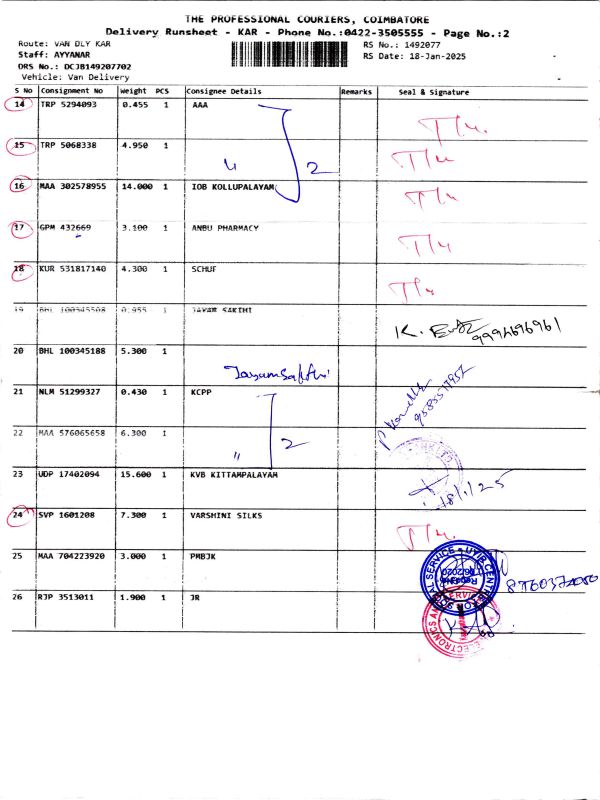 THE PROFESSIONAL COURIERS, COIMBATORE
Delivery Runsheet - KAR - Phone No.:0422-3505555 - Page No.:2
Route: VAN DLY KAR
RS No.: 1492077
Staff: AYYANAR
RS Date: 18-Jan-2025
DRS No.: DCJB149207702
Vehicle: Van Delivery
S No Consignment No Weight PCS Consignee Details Remarks Seal & Signature
14 TRP 5294093 0.455 1 AAA
15 TRP 5068338 4.950 1 " 2
16 MAA 302578955 14.000 1 IOB KOLLUPALAYAM
17 GPM 432669 3.100 1 ANBU PHARMACY
18 KUR 531817140 4.300 1 SCHUF
19 BHL 100345508 0.955 1 JAYAM SAKTHI
9994696961
20 BHL 100345188 5.300 1
Jayam Sakthi
21 NLM 51299327 0.430 1 KCPP
22 MAA 576065658 6.300 1 " 2
23 UDP 17402094 15.600 1 KVB KITTAMPALAYAM
18/1/25
24 SVP 1601208 7.300 1 VARSHINI SILKS
25 MAA 704223920 3.000 1 PMBJK
SOCIAL SERVICE
26 RJP 3513011 1.900 1 JR
ELECTRONICS AND SERVICE